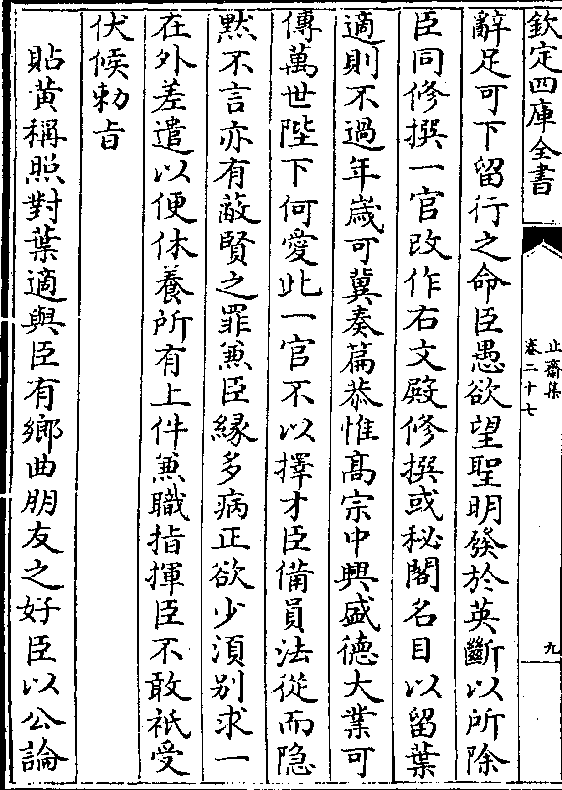 欽定四庫全書
止齋集
卷二十七
九
辭足可下留行之命臣愚欲望聖明發於英斷以所除
臣同修撰一官改作右文殿修撰或秘閣名目以留葉
適則不過年嵗可冀奏篇恭惟髙宗中興盛德大業可
傳萬世陛下何愛此一官不以擇才臣備員法從而隐
黙不言亦有蔽賢之罪兼臣縁多病正欲少湏别求一
在外差遣以便休養所有上件兼職指揮臣不敢祇受
伏候勅㫖
貼黄稱照對葉適與臣有鄉曲朋友之好臣以公論